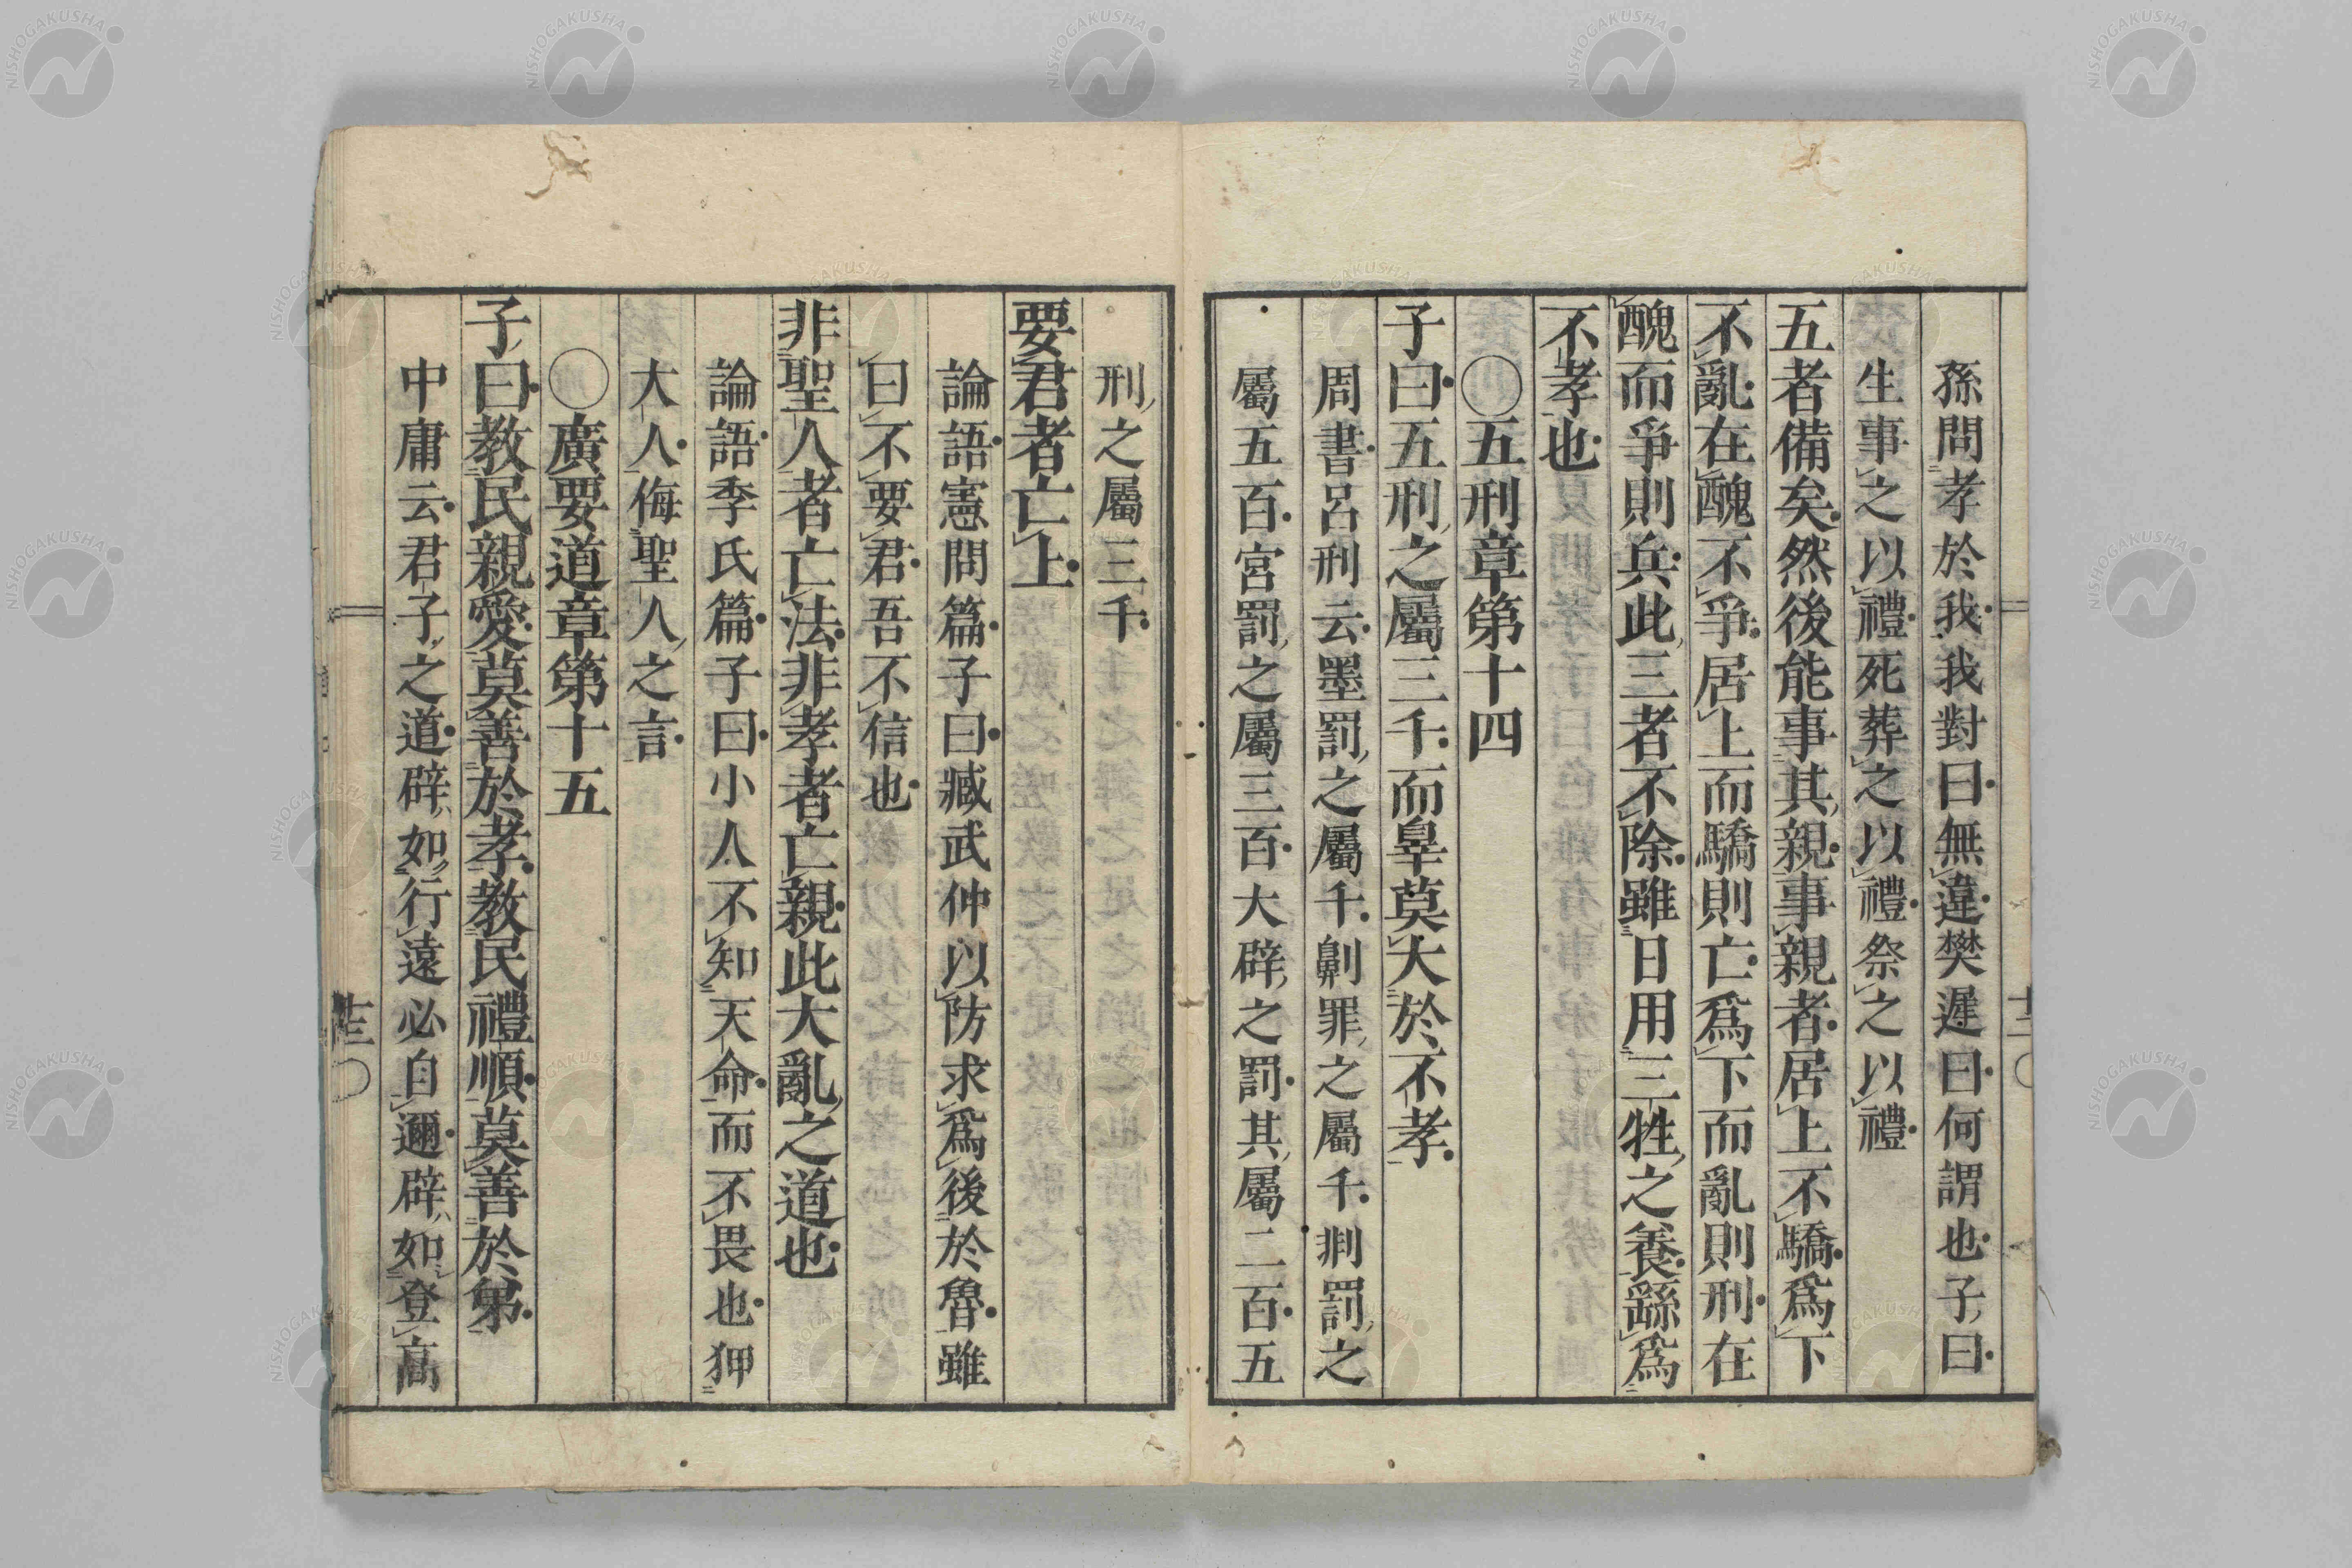 孫問孝於我我對曰無違樊遲曰何謂也子曰
生事之以禮死葬之以禮祭之以禮
五者備矣然後能事其親事親者居上不驕爲下
不亂在醜不爭居上而驕則亡爲下而亂則刑在
醜而爭則兵此三者不除雖日用三牲之養繇爲
不孝也
〇五刑章第十四
子曰五刑之屬三千而辠莫大於不孝
周書呂刑云墨罰之屬千劓罪之屬千剕罰之
屬五百宮罰之屬三百大辟之罰其屬二百五
刑之屬三千
要君者亡上
論語憲問篇子曰臧武仲以防求爲後於魯雖
曰不要君吾不信也
非聖人者亡法非孝者亡親此大亂之道也
論語季氏篇子曰小人不知天命而不畏也狎
大人侮聖人之言
〇廣要道章第十五
子曰教民親愛莫善於孝教民禮順莫善於弟
中庸云君子之道辟如行遠必自邇辟如登高
十三〇
NISHOGAKUSHA